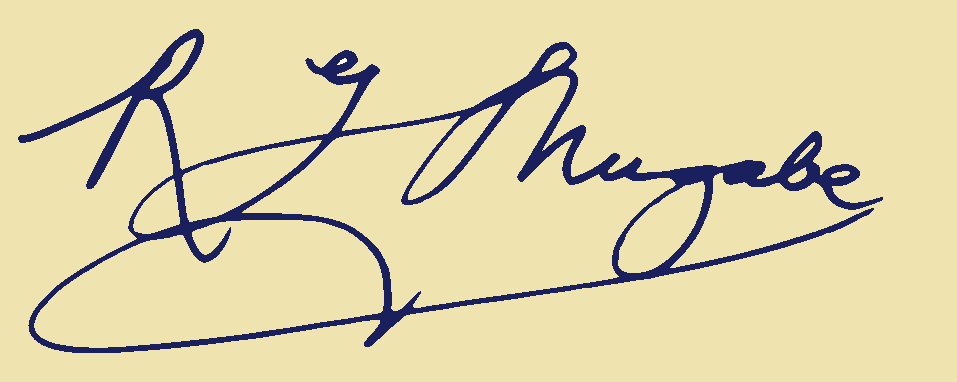 R G Mugabe